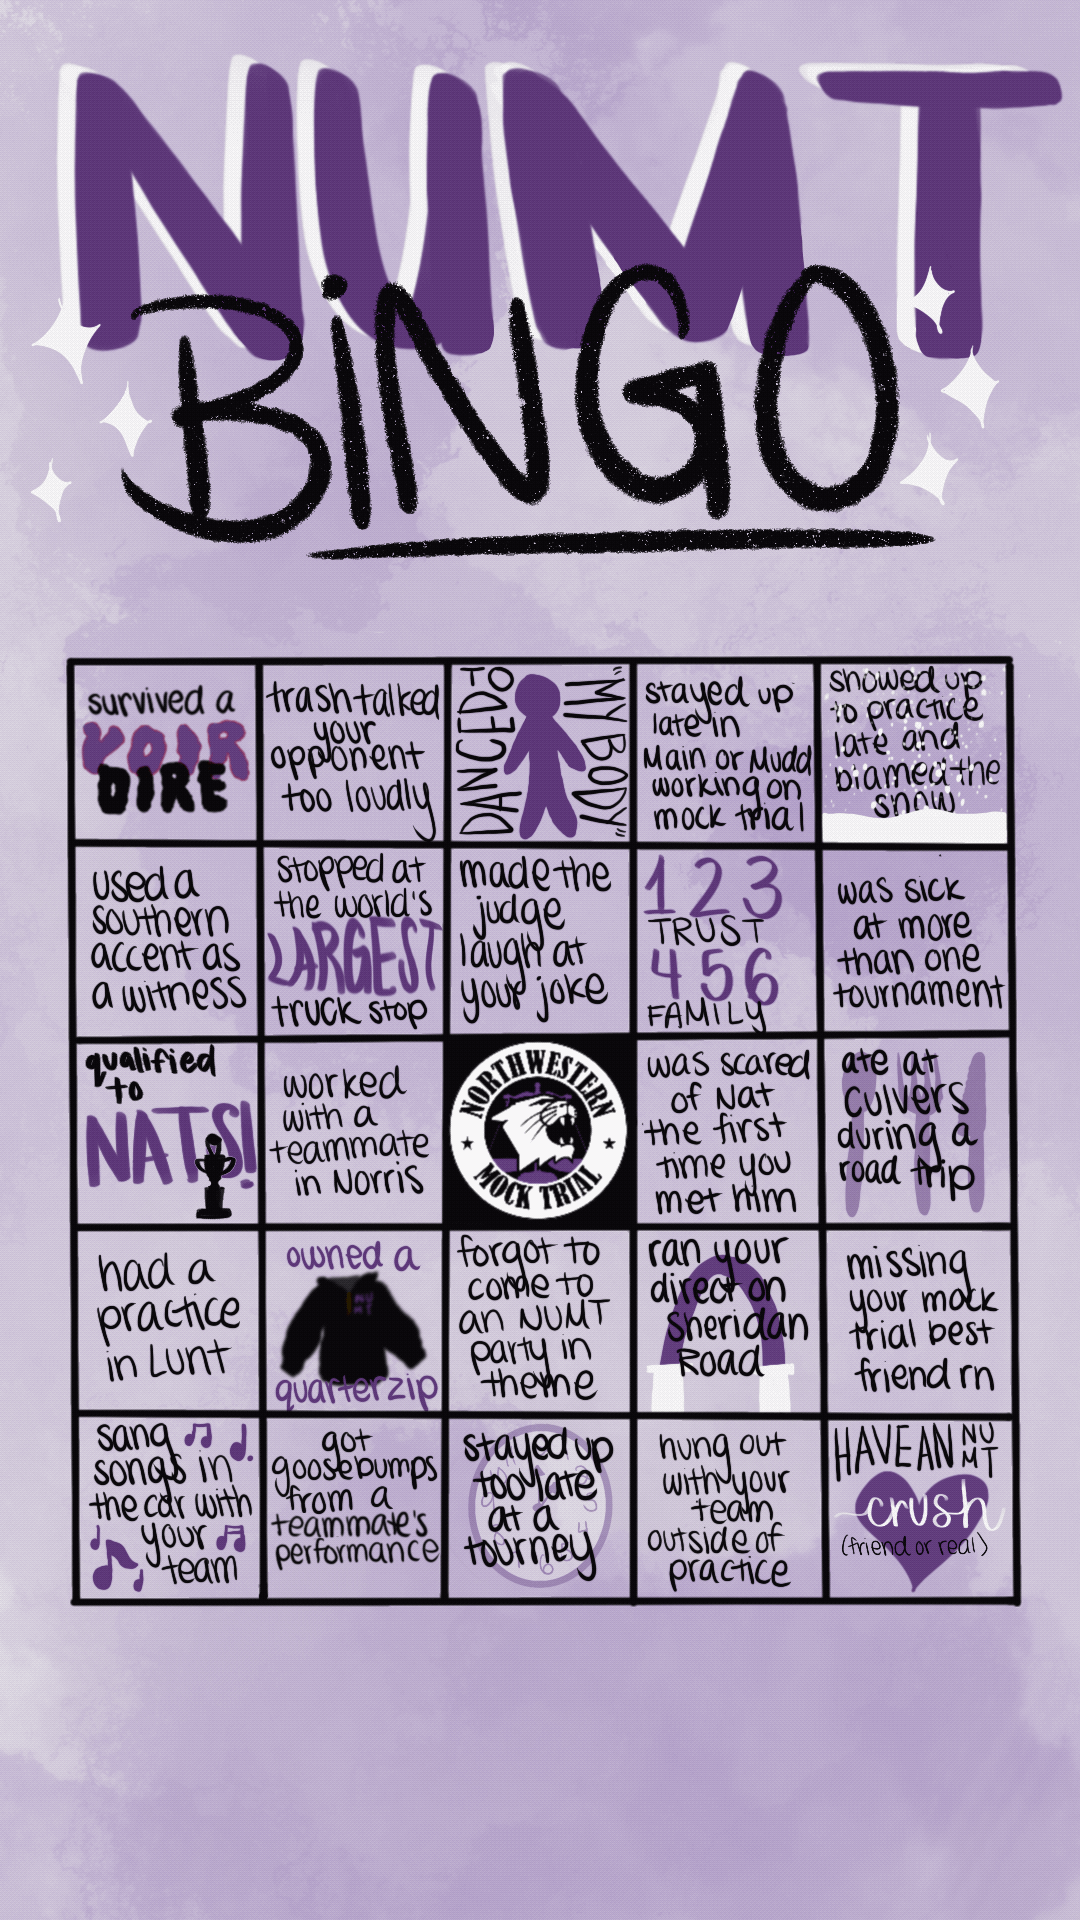 NUMT
BiNGO
survived a
VOIR
DIRE
trash talked
your
opponent
too loudly
DANCED TO
"MY BODY"
stayed up
late in
Main or Mudd
working on
mock trial
showed up
to practice
late and
blamed the
snow
used a
southern
accent as
a witness
stopped at
the world's
LARGEST
truck stop
made the
judge
laugh at
your joke
1 2 3
TRUST
4 5 6
FAMILY
was sick
at more
than one
tournament
qualified
to
NATS!
worked
with a
teammate
in Norris
NORTHWESTERN
MOCK TRIAL
was scared
of Nat
the first
time you
met him
ate at
culvers
during a
road trip
had a
practice
in Lunt
owned a
NU
MT
quarterzip
forgot to
come to
an NUMT
party in
theme
ran your
direct on
Sheridan
Road
missing
your mock
trial best
friend rn
sang
songs in
the car with
your
team
got
goosebumps
from a
teammate's
performance
stayed up
too late
at a
tourney
hung out
with your
team
outside of
practice
HAVE AN NU
MT
crush
(friend or real)